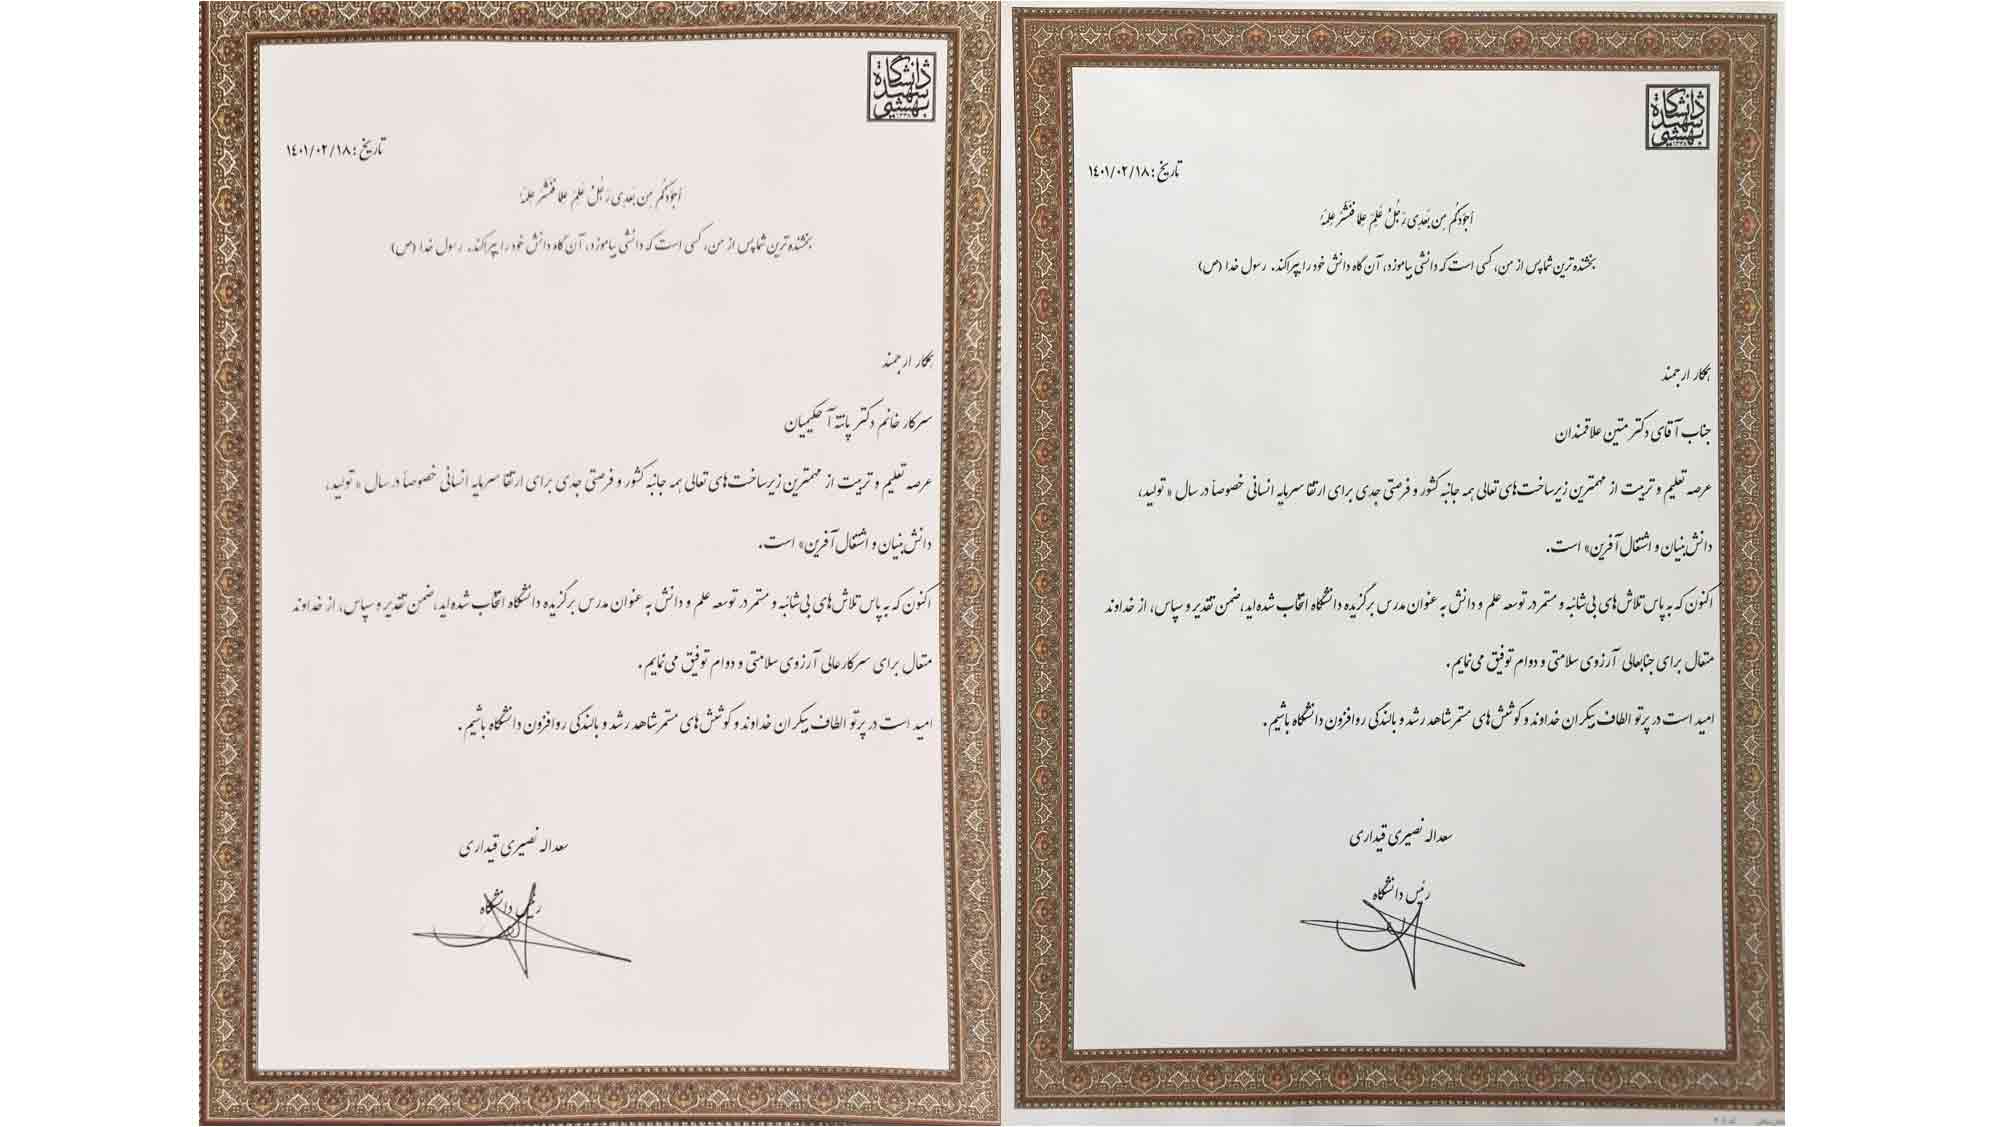 دانشگاه
شهید
بهشتی
۱۳۳۸
تاریخ: ۱۴۰۱/۰۲/۱۸
أجوَدُكُم مِن بَعدِی رَجُلٌ عَلِمَ عِلمًا فَنَشَرَ عِلمَهُ
بخشنده ترین شما پس از من، کسی است که دانشی بیاموزد، آن گاه دانش خود را بپراکند. رسول خدا (ص)
همکار ارجمند
جناب آقای دکتر متین علاقمندان
عرصه تعلیم و تربیت از مهمترین زیرساخت‌های تعالی همه جانبه کشور و فرصتی جدی برای ارتقا سرمایه انسانی خصوصاً در سال « تولید،
دانش بنیان و اشتغال آفرین» است.
اکنون که به پاس تلاش‌های بی‌شائبه و مستمر در توسعه علم و دانش به عنوان مدرس برگزیده دانشگاه انتخاب شده‌اید، ضمن تقدیر و سپاس، از خداوند
متعال برای جنابعالی آرزوی سلامتی و دوام توفیق می‌نمایم.
امید است در پرتو الطاف بیکران خداوند و کوشش‌های مستمر شاهد رشد و بالندگی روافزون دانشگاه باشیم.
سعداله نصیری قیداری
رئیس دانشگاه
دانشگاه
شهید
بهشتی
۱۳۳۸
تاریخ: ۱۴۰۱/۰۲/۱۸
أجوَدُكُم مِن بَعدِی رَجُلٌ عَلِمَ عِلمًا فَنَشَرَ عِلمَهُ
بخشنده ترین شما پس از من، کسی است که دانشی بیاموزد، آن گاه دانش خود را بپراکند. رسول خدا (ص)
همکار ارجمند
سرکار خانم دکتر پانته آ حکیمیان
عرصه تعلیم و تربیت از مهمترین زیرساخت‌های تعالی همه جانبه کشور و فرصتی جدی برای ارتقا سرمایه انسانی خصوصاً در سال « تولید،
دانش بنیان و اشتغال آفرین» است.
اکنون که به پاس تلاش‌های بی‌شائبه و مستمر در توسعه علم و دانش به عنوان مدرس برگزیده دانشگاه انتخاب شده‌اید، ضمن تقدیر و سپاس، از خداوند
متعال برای سرکارعالی آرزوی سلامتی و دوام توفیق می‌نمایم.
امید است در پرتو الطاف بیکران خداوند و کوشش‌های مستمر شاهد رشد و بالندگی روافزون دانشگاه باشیم.
سعداله نصیری قیداری
رئیس دانشگاه